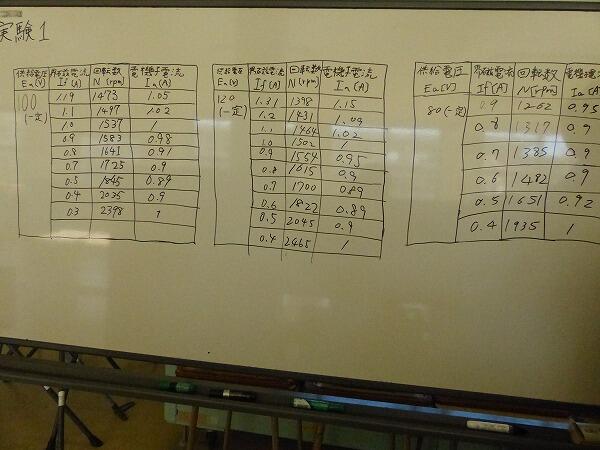 実験1
供給電圧 界磁電流 回転数 電機子電流
Ea(V) If(A) N(rpm) Ia(A)
100 1.19 1473 1.05
(一定) 1.1 1497 1.02
1.0 1537 1
0.9 1583 0.98
0.8 1641 0.91
0.7 1725 0.9
0.5 1845 0.89
0.4 2035 0.9
0.3 2398 1
供給電圧 界磁電流 回転数 電機子電流
Ea(V) If(A) N(rpm) Ia(A)
120 1.31 1398 1.15
(一定) 1.2 1431 1.09
1.1 1464 1.02
1.0 1502 1
0.9 1554 0.95
0.8 1615 0.9
0.7 1700 0.89
0.6 1822 0.89
0.5 2045 0.9
0.4 2465 1
供給電圧 界磁電流 回転数 電機子電流
Ea(V) If(A) N(rpm) Ia(A)
80(一定) 0.9 1262 0.95
0.8 1317 0.9
0.7 1385 0.9
0.6 1482 0.9
0.5 1651 0.92
0.4 1935 1